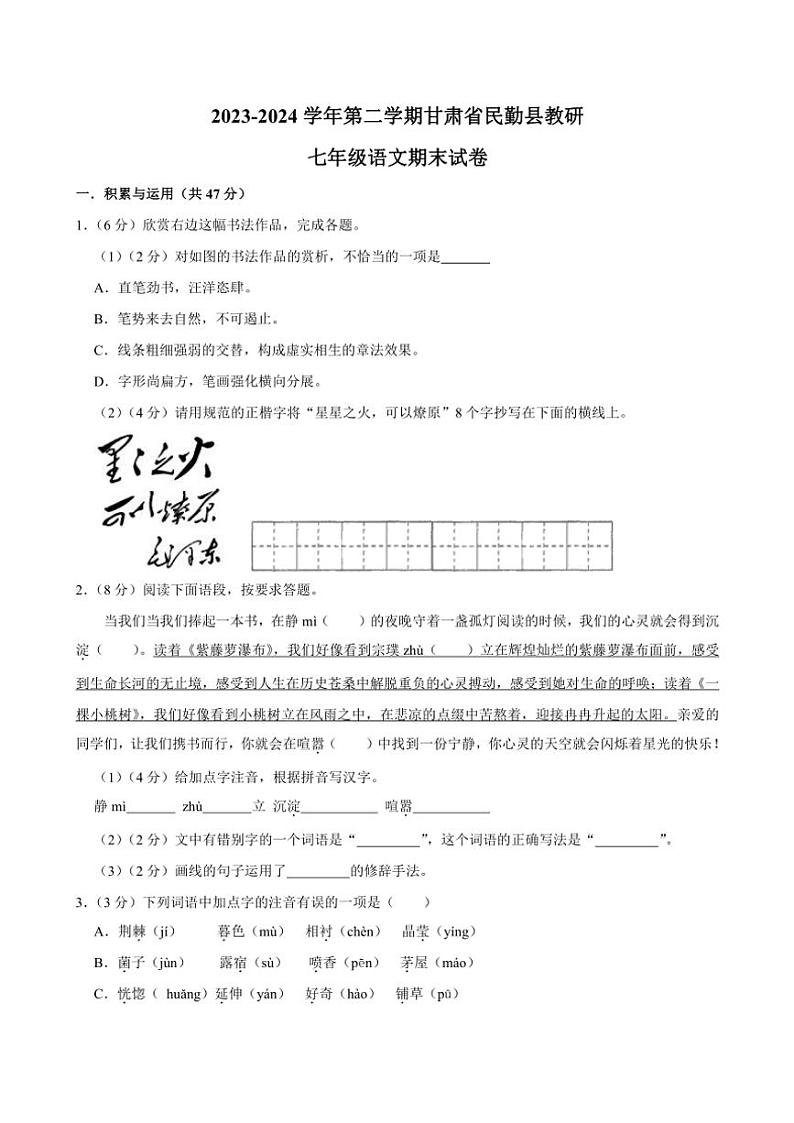 2023-2024 学年第二学期甘肃省民勤县教研
七年级语文期末试卷
一．积累与运用（共 47 分）
1．（6 分）欣赏右边这幅书法作品，完成各题。
（1）（2 分）对如图的书法作品的赏析，不恰当的一项是_______
A．直笔劲书，汪洋恣肆。
B．笔势来去自然，不可遏止。
C．线条粗细强弱的交替，构成虚实相生的章法效果。
D．字形尚扁方，笔画强化横向分展。
（2）（4 分）请用规范的正楷字将“星星之火，可以燎原”8 个字抄写在下面的横线上。
星星之火
可以燎原
毛泽东
2．（8 分）阅读下面语段，按要求答题。
当我们当我们捧起一本书，在静 mì（　　）的夜晚守着一盏孤灯阅读的时候，我们的心灵就会得到沉
淀（　　）。读着《紫藤萝瀑布》，我们好像看到宗璞 zhù（　　）立在辉煌灿烂的紫藤萝瀑布面前，感受
到生命长河的无止境，感受到人生在历史苍桑中解脱重负的心灵搏动，感受到她对生命的呼唤；读着《一
棵小桃树》，我们好像看到小桃树立在风雨之中，在悲凉的点缀中苦熬着，迎接冉冉升起的太阳。亲爱的
同学们，让我们携书而行，你就会在喧嚣（　　）中找到一份宁静，你心灵的天空就会闪烁着星光的快乐！
（1）（4 分）给加点字注音，根据拼音写汉字。
静 mì_______ zhù_______立 沉淀___________ 喧嚣___________
（2）（2 分）文中有错别字的一个词语是“_________”，这个词语的正确写法是“_________”。
（3）（2 分）画线的句子运用了_________的修辞手法。
3．（3 分）下列词语中加点字的注音有误的一项是（　　）
A．荆棘（jí） 暮色（mù） 相衬（chèn） 晶莹（yíng）
B．菌子（jùn） 露宿（sù） 喷香（pēn） 茅屋（máo）
C．恍惚（ huǎng）延伸（yán） 好奇（hào） 铺草（pū）